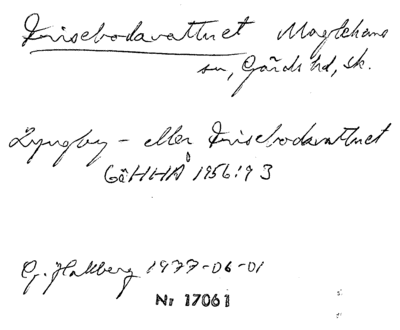 Krisebodavattnet Maglehems
sn, Gärds hd, Sk.
Lyngby- eller Krisebodavattnet
GäHHÅ 1956:93
G. Hallberg 1977-06-01
Nr 17061